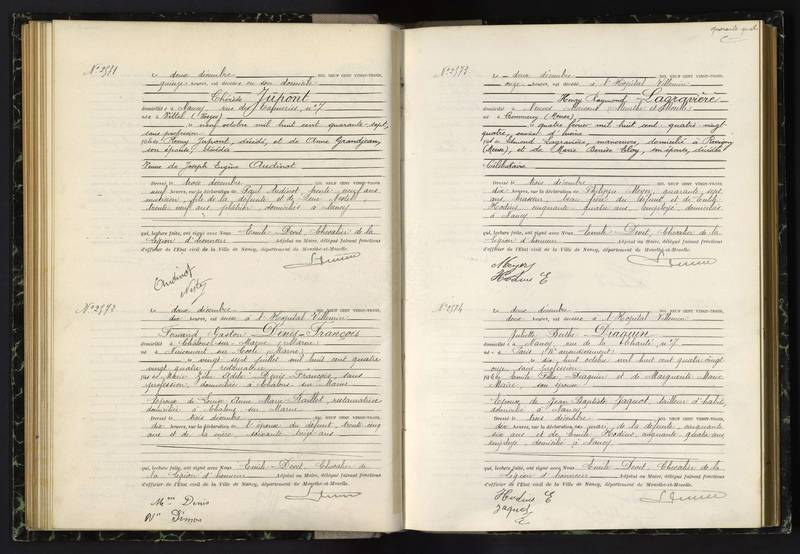 N° 2971
Le deux décembre mil neuf cent vingt-trois,
quinze heures, est décédée en son domicile
Thérèse Jupont
domiciliée à Nancy, rue des Tanneries, n° 7
née à Vittel (Vosges)
le neuf octobre mil huit cent quarante sept,
sans profession
fille de Rémy Jupont, décédé, et de Anne Grandjean,
son épouse, décédée
Veuve de Joseph Eugène Audinot
Dressé le trois décembre mil neuf cent vingt-trois,
neuf heures, sur la déclaration de Paul Audinot, trente neuf ans
fils de la défunte et de
trente neuf ans, domiciliés à Nancy
qui, lecture faite, ont signé avec Nous Emile Devit, Chevalier de la
Légion d'honneur Adjoint au Maire, délégué faisant fonctions
d'officier de l'État civil de la Ville de Nancy, département de Meurthe-et-Moselle.
Audinot
N° 2972
Le deux décembre mil neuf cent vingt-trois,
dix heures, est décédé à l'Hopital Villemin
Fernand Gaston Denis-François
domicilié à Châlons sur Marne (Marne)
né à (Marne)
le vingt sept juillet mil huit cent quatre
vingt quatre, restaurateur
fils de Marie Julie Adèle Denis-François, sans
profession, domiciliée à Châlons sur Marne
Epoux de Louise Anne Marie Raillet, restauratrice
domiciliée à Châlons sur Marne
Dressé le trois décembre mil neuf cent vingt-trois,
dix heures, sur la déclaration de l'épouse du défunt, trente cinq
ans et de la mère, soixante ans
qui, lecture faite, ont signé avec Nous Emile Devit, Chevalier de
la Légion d'honneur Adjoint au Maire, délégué faisant fonctions
d'officier de l'État civil de la Ville de Nancy, département de Meurthe-et-Moselle.
Mme Denis
Vve Simon
quarante quat.
N° 2973
Le deux décembre mil neuf cent vingt-trois,
onze heures, est décédé à l'Hopital Villemin
Henry Raymond Lagravière
domicilié à Neuves Maisons (Meurthe et Moselle)
né à Commercy (Meuse)
le quatre février mil huit cent quatre vingt
quatre, ouvrier d'usine
fils de Edmond Lagravière, manoeuvre, domicilié à Revigny
(Meuse), et de Marie Denise Cloy, son épouse, décédée
Célibataire
Dressé le trois décembre mil neuf cent vingt-trois,
dix heures, sur la déclaration de Philogène Meyer, quarante sept
ans, brasseur, beau frère du défunt et de Emile
Hodius, cinquante quatre ans, employé, domiciliés
à Nancy
qui, lecture faite, ont signé avec Nous Emile Devit, Chevalier de la
Légion d'honneur Adjoint au Maire, délégué faisant fonctions
d'officier de l'État civil de la Ville de Nancy, département de Meurthe-et-Moselle.
Meyer
Hodius E
N° 2974
Le deux décembre mil neuf cent vingt-trois,
douze heures, est décédée à l'Hopital Villemin
Juliette Berthe Diaquin
domiciliée à Nancy, rue de la Charité, n° 7
née à Paris (arrondissement)
le dix huit octobre mil huit cent quatre vingt
onze, sans profession
fille de Emile Diaquin et de Marguerite Marie
son épouse
Epouse de Jean Baptiste Jaquot, tailleur d'habits,
domicilié à Nancy
Dressé le trois décembre mil neuf cent vingt-trois,
dix heures, sur la déclaration du mari de la défunte, cinquante
six ans et de Emile Hodius, cinquante quatre ans
employé, domicilié à Nancy
qui, lecture faite, ont signé avec Nous Emile Devit, Chevalier de la
Légion d'honneur Adjoint au Maire, délégué faisant fonctions
d'officier de l'État civil de la Ville de Nancy, département de Meurthe-et-Moselle.
Hodius E
Jaquot